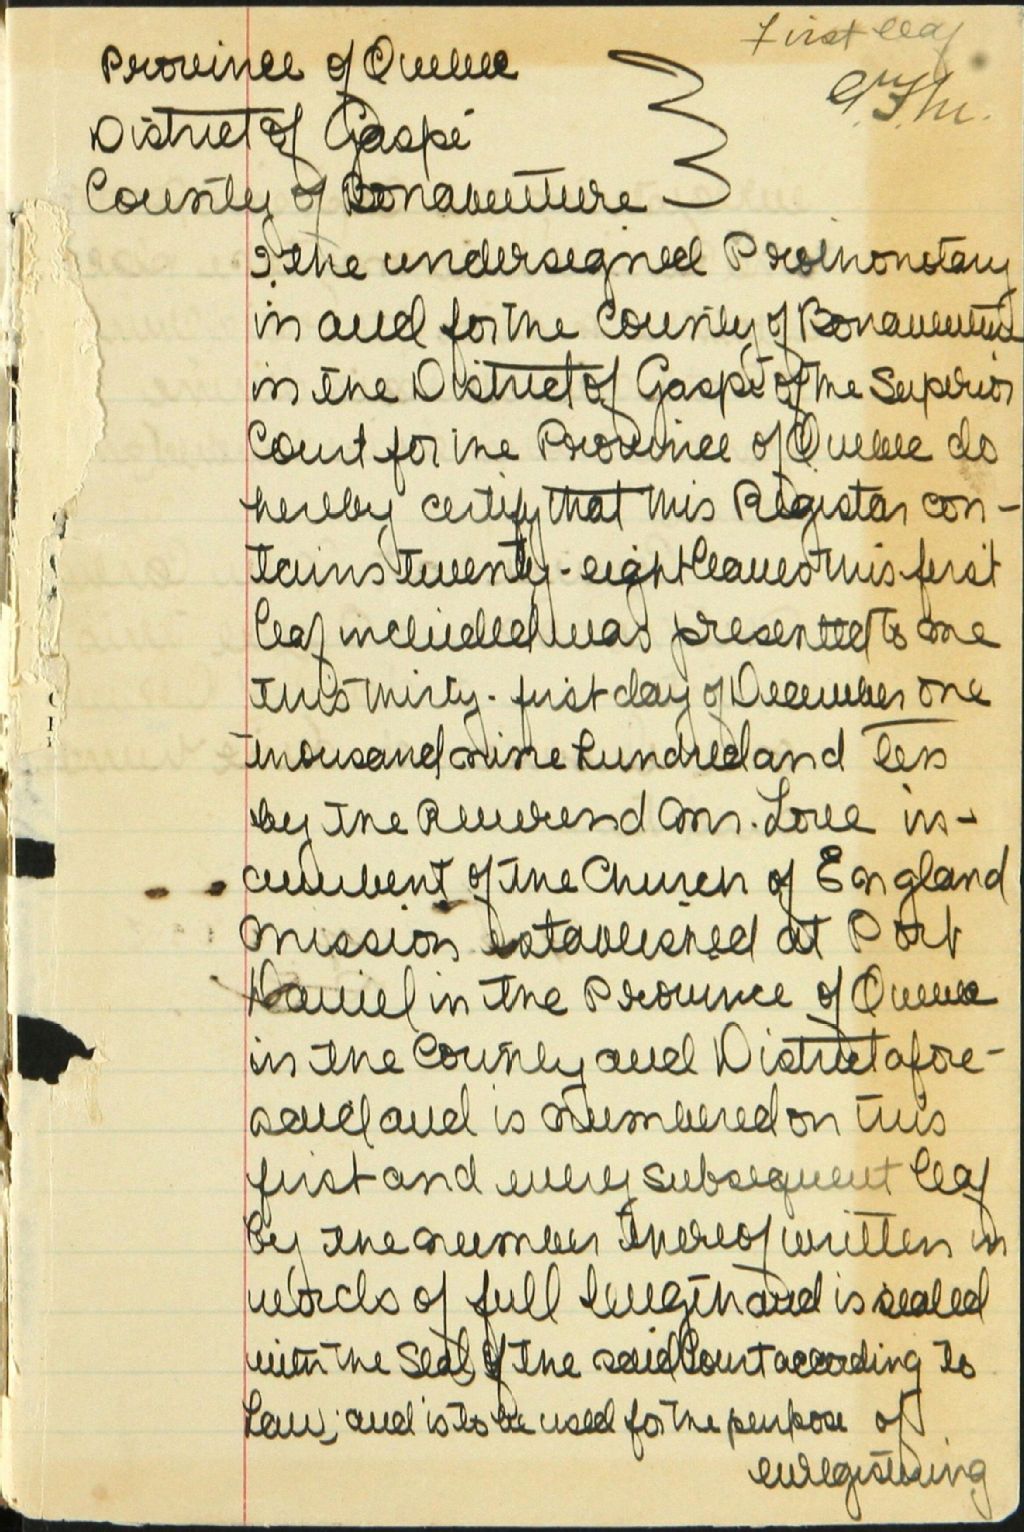 First leaf
Province of Quebec
District of Gaspé
County of Bonaventure
I, the undersigned Prothonotary
in and for the County of Bonaventure
in the District of Gaspé of the Superior
Court for the Province of Quebec do
hereby certify that this Register con-
tains twenty-eight leaves this first
leaf included was presented to me
this thirty-first day of December one
thousand nine hundred and ten
by the Reverend Wm. Love in-
cumbent of the Church of England
Mission established at Port
Daniel in the Province of Quebec
in the County and District afore-
said and is numbered on this
first and every subsequent leaf
by the number thereof written in
words of full length and is sealed
with the Seal of the said Court according to
Law, and is to be used for the purpose of
enregistering